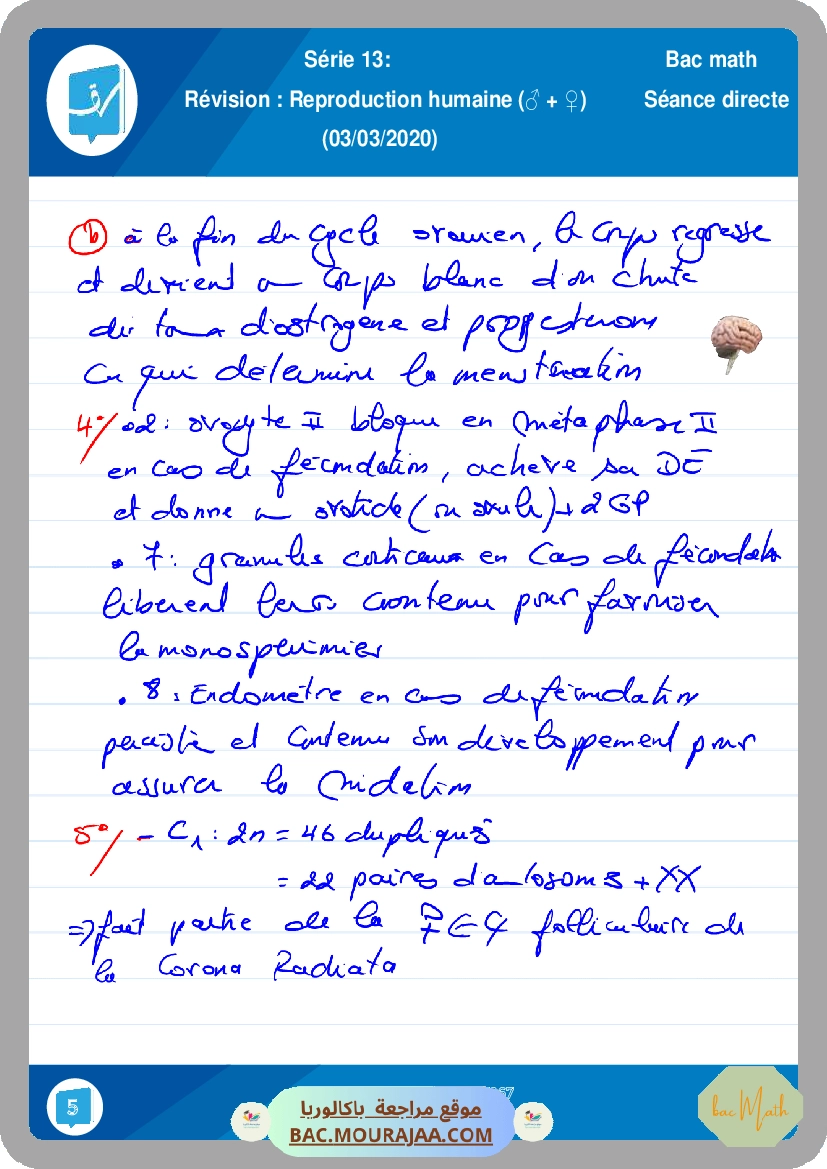 Série 13:
Bac math
Révision : Reproduction humaine (♂ + ♀)
Séance directe
(03/03/2020)
b à la fin du cycle ovarien, le corps regresse
et devient un corps blanc d'où chute
du taux d'oestrogene et progesterone
ce qui détermine la menstruation
4°/ • 2 : ovocyte II bloque en métaphase II
en cas de fécondation, achève sa DE
et donne un ovotide (ou ovule) + 2 GP
• 7 : granules corticaux en cas de fécondation
liberent leur contenu pour favoriser
la monospermie
• 8 : Endomètre en cas de fécondation
persiste et continu son developpement pour
assurer la nidation
5°/ - C1 : 2n = 46 dupliqués
= 22 paires d'autosomes + XX
=> fait partie de la folliculaire de
la Corona Radiata
5
موقع مراجعة باكالوريا
BAC.MOURAJAA.COM
bac Math